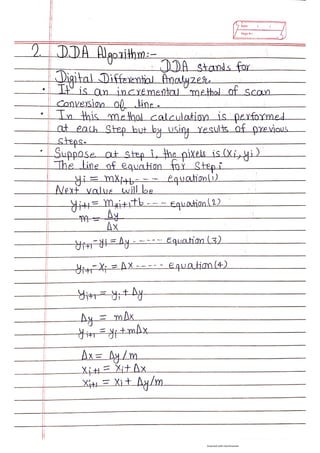 2. D.D.A Algorithm:-
DDA stands for
Digital Differential Analyzer.
• It is an incremental method of scan
conversion of line.
• In this method calculation is performed
at each step but by using results of previous
steps.
• Suppose at step i, the pixels is (xi, yi)
The line of equation for step i
yi = mxi+b --- equation(1)
Next value will be
yi+1 = mxi+1+b ---- Equation(2)
m = Δy
Δx
yi+1-yi = Δy ----- Equation (3)
yi+1-xi = Δx ----- Equation(4)
yi+1 = yi + Δy
Δy = mΔx
yi+1 = yi + mΔx
Δx = Δy/m
xi+1 = xi + Δx
xi+1 = xi + Δy/m